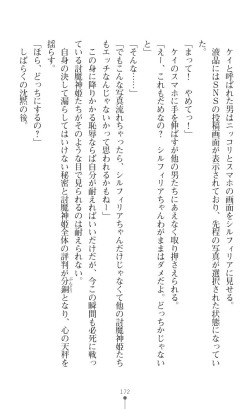 ケイと呼ばれた男はニッコリとスマホの画面をシルフィリアに見せる。
液晶にはSNSの投稿画面が表示されており、先程の写真が選択された状態になってい
た。
「まって！　やめてっ！」
ケイのスマホに手を伸ばすが他の男たちにあえなく取り押さえられる。
「えー、これもだめなの？　シルフィリアちゃんわがままはダメだよ。どっちかじゃない
と」
「そんな……」
「でもこんな写真流れちゃったら、シルフィリアちゃんだけじゃなくて他の討魔神姫たち
もエッチなんじゃないかって思われるかもねー」
この身に降りかかる恥辱ならば自分が耐えればいいだけだが、今この瞬間も必死に戦っ
ている討魔神姫たちがそのような目で見られるのは耐えられない。
自身の決して漏らしてはいけない秘密と討魔神姫全体の評判が分銅となり、心の天秤を
揺らす。
「ほら、どっちにするの？」
しばらくの沈黙の後。
172